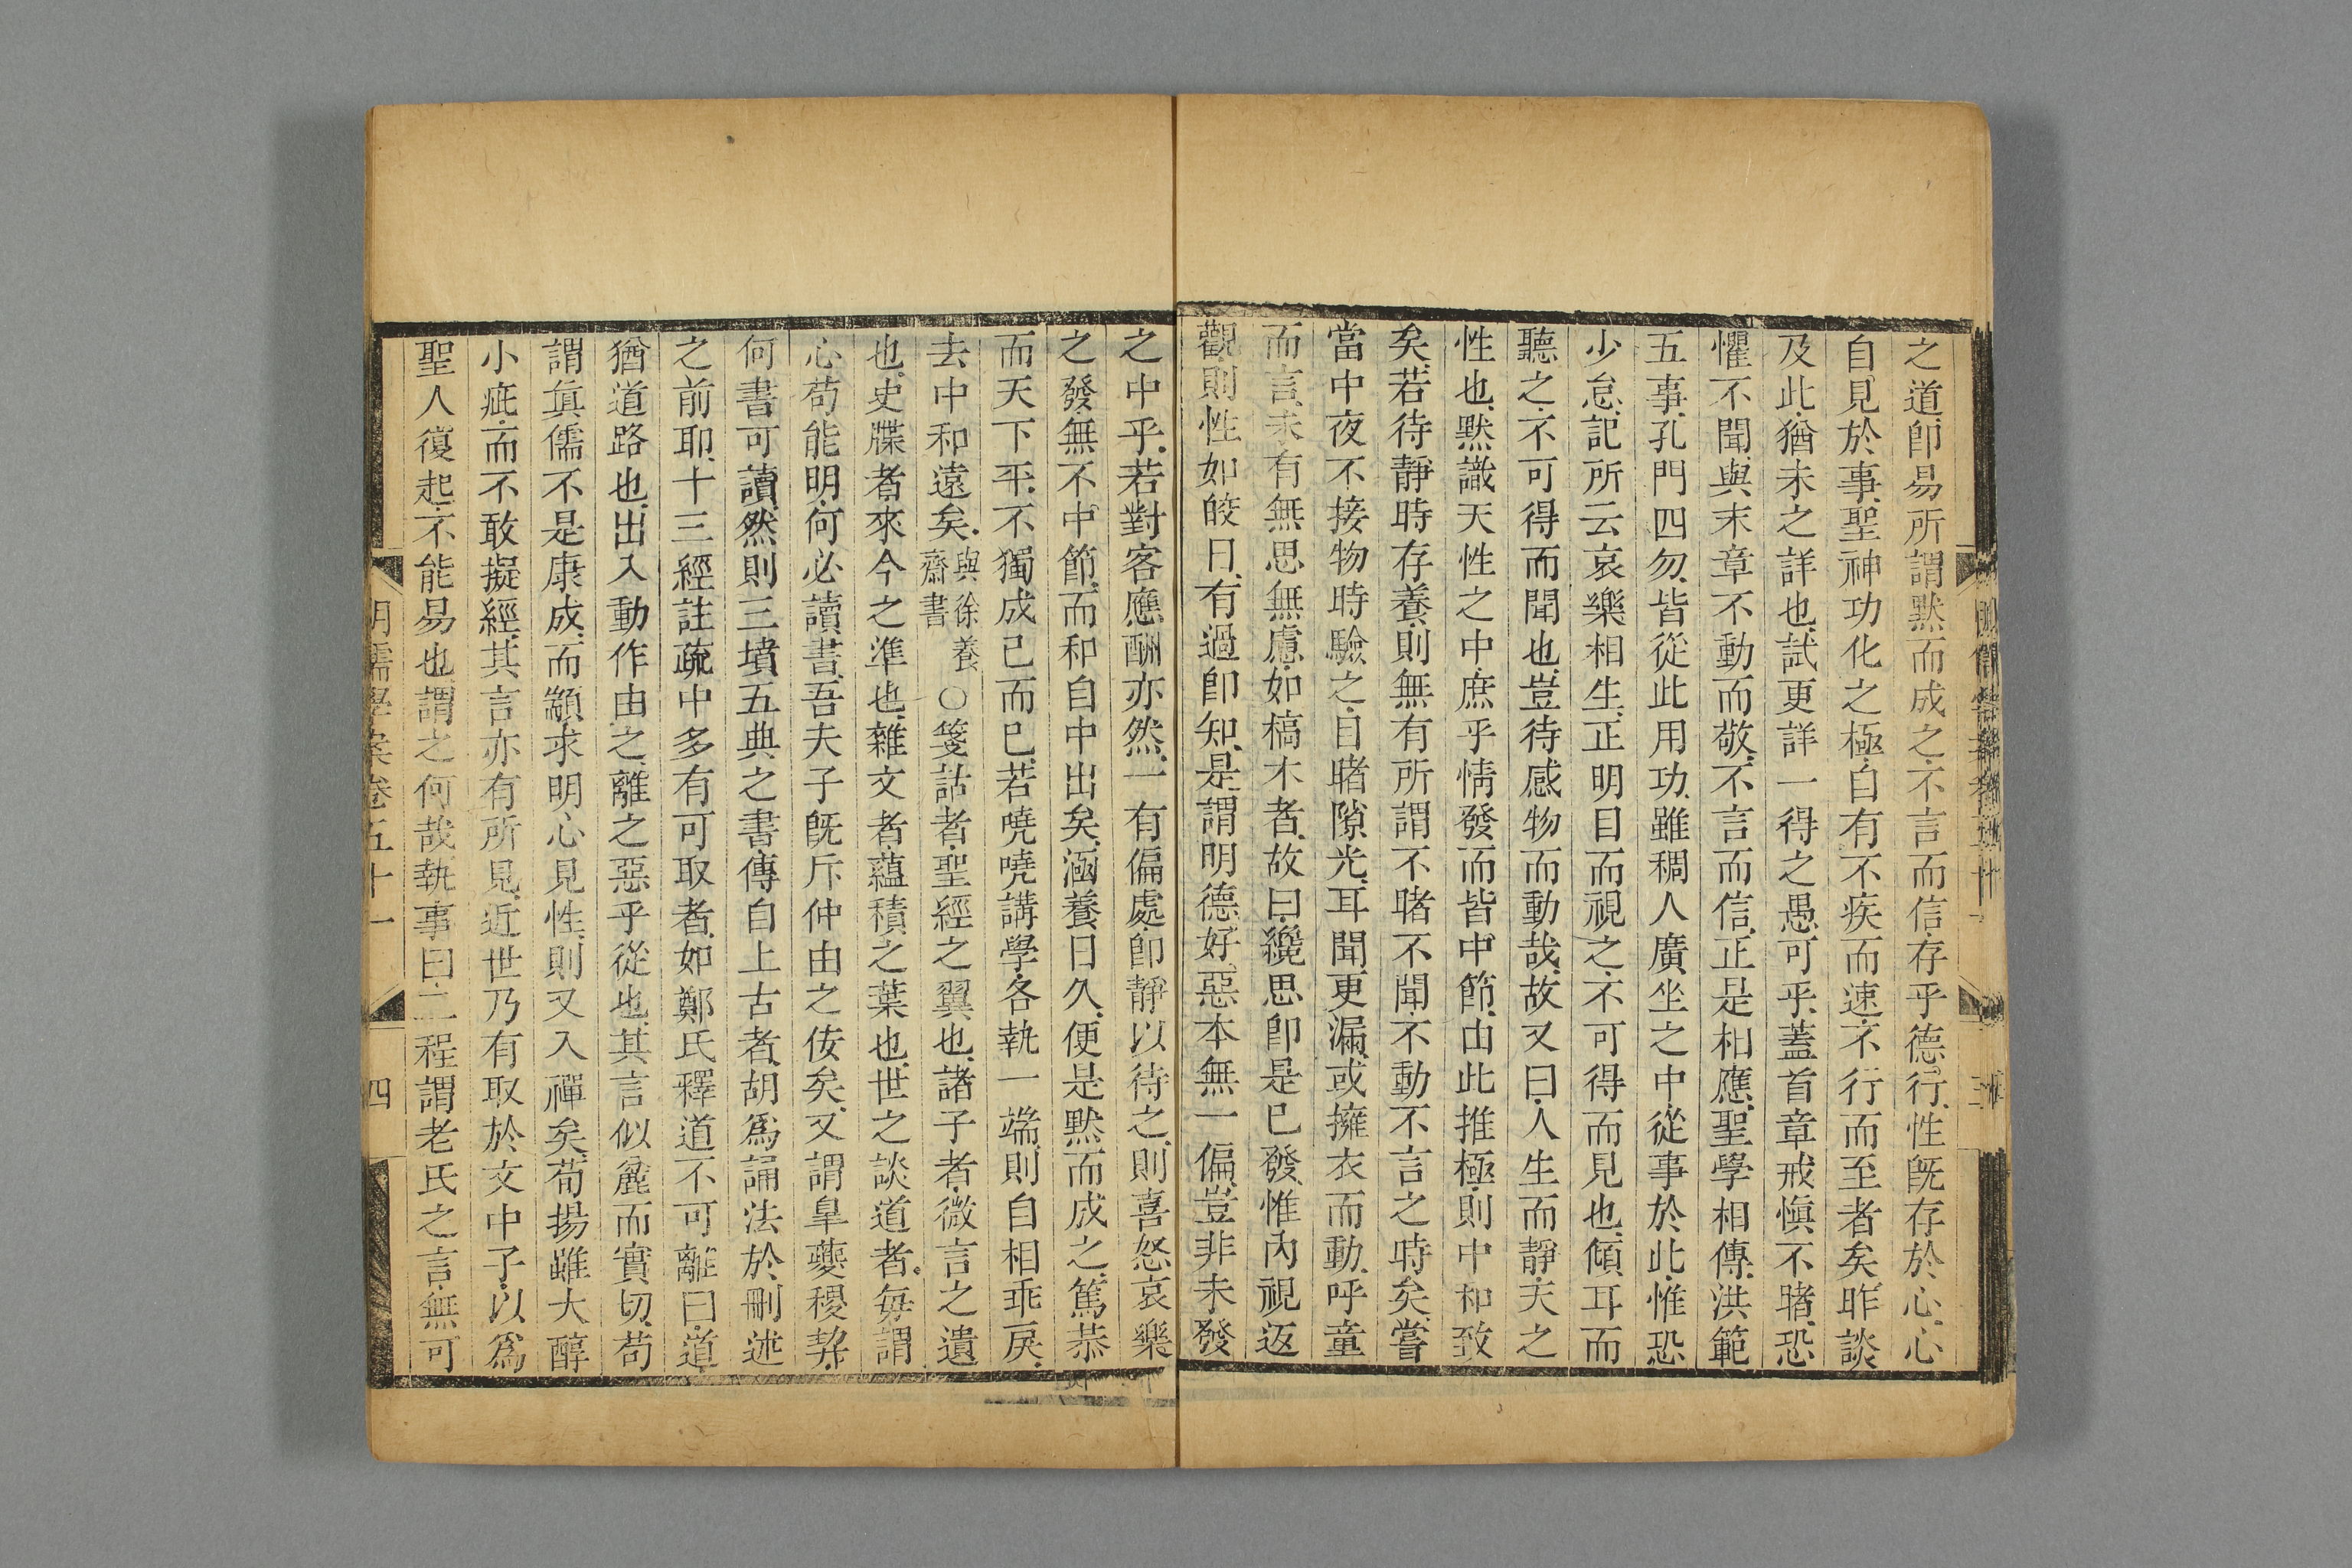 之道卽易所謂默而成之不言而信存乎德行性旣存於心心
自見於事聖神功化之極自有不疾而速不行而至者矣昨談
及此猶未之詳也試更詳一得之愚可乎蓋首章戒愼不睹恐
懼不聞與末章不動而敬不言而信正是相應聖學相傳洪範
五事孔門四勿皆從此用功雖稠人廣坐之中從事於此惟恐
少怠記所云哀樂相生正明目而視之不可得而見也傾耳而
聽之不可得而聞也豈待感物而動哉故又曰人生而靜天之
性也默識天性之中庶乎情發而皆中節由此推極則中和致
矣若待靜時存養則無有所謂不睹不聞不動不言之時矣嘗
當中夜不接物時驗之目睹隙光耳聞更漏或擁衣而動呼童
而言未有無思無慮如槁木者故曰纔思卽是已發惟內視返
觀則性如皎日有過卽知是謂明德好惡本無一偏豈非未發
之中乎若對客應酬亦然一有偏處卽靜以待之則喜怒哀樂
之發無不中節而和自中出矣涵養日久便是默而成之篤恭
而天下平不獨成已而已若嘵嘵講學各執一端則自相乖戾
去中和遠矣與徐養齋書○箋詁者聖經之翼也諸子者微言之遺
也史牒者來今之準也雜文者蘊積之葉也世之談道者每謂
心苟能明何必讀書吾夫子旣斥仲由之佞矣又謂臯夔稷契
何書可讀然則三墳五典之書傳自上古者胡爲誦法於刪述
之前耶十三經註疏中多有可取者如鄭氏釋道不可離曰道
猶道路也出入動作由之離之惡乎從也其言似麄而實切苟
謂眞儒不是康成而顓求明心見性則又入禪矣荀揚雖大醇
小疵而不敢擬經其言亦有所見近世乃有取於文中子以爲
聖人復起不能易也謂之何哉執事曰二程謂老氏之言無可
明儒學案卷五十一
四